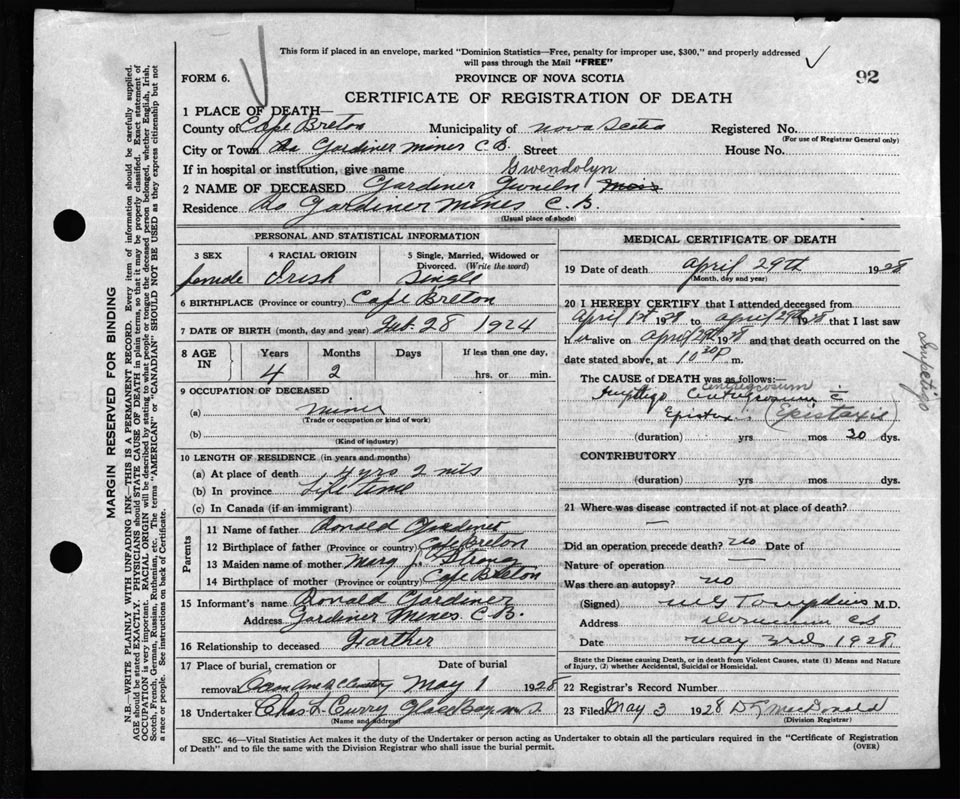 This form if placed in an envelope, marked "Dominion Statistics—Free, penalty for improper use, $300," and properly addressed
will pass through the Mail "FREE"
92
FORM 6.
PROVINCE OF NOVA SCOTIA
CERTIFICATE OF REGISTRATION OF DEATH
1 PLACE OF DEATH—
County of Cape Breton Municipality of Nova Scotia Registered No.
(For use of Registrar General only)
City or Town Gardiner Mines C.B. Street House No.
If in hospital or institution, give name
Gwendolyn
2 NAME OF DECEASED Gardiner
Residence Gardiner Mines C.B.
(Usual place of abode)
PERSONAL AND STATISTICAL INFORMATION
3 SEX 4 RACIAL ORIGIN 5 Single, Married, Widowed or
Divorced. (Write the word)
female Irish Single
6 BIRTHPLACE (Province or country) Cape Breton
7 DATE OF BIRTH (month, day and year) Feb. 28 1924
8 AGE IN Years Months Days If less than one day,
4 2 hrs. or min.
9 OCCUPATION OF DECEASED
(a) minor
(Trade or occupation or kind of work)
(b)
(Kind of industry)
10 LENGTH OF RESIDENCE (in years and months)
(a) At place of death 4 yrs 2 mts
(b) In province Life time
(c) In Canada (if an immigrant)
Parents
11 Name of father Ronald Gardiner
12 Birthplace of father (Province or country) Cape Breton
13 Maiden name of mother Mary J.
14 Birthplace of mother (Province or country) Cape Breton
15 Informant's name Ronald Gardiner
Address Gardiner Mines C.B.
16 Relationship to deceased Farther
17 Place of burial, cremation or Date of burial
removal May 1 1928
18 Undertaker Chas L Curry Glace Bay N.S
(Name and address)
MEDICAL CERTIFICATE OF DEATH
19 Date of death April 29th 1928
(Month, day and year)
20 I HEREBY CERTIFY that I attended deceased from
April 1st 19 to April 29th 1928 that I last saw
h er alive on April 29th 1928 and that death occurred on the
date stated above, at 10 30 P. m.
The CAUSE of DEATH was as follows:—
Impetigo
(Epistaxis)
(duration) yrs mos 30 dys.
CONTRIBUTORY
(duration) yrs. mos. dys.
21 Where was disease contracted if not at place of death?
—
Did an operation precede death? no Date of
Nature of operation —
Was there an autopsy? no
(Signed) M.D.
Address Dominion CB
Date May 3rd 1928.
State the Disease causing Death, or in death from Violent Causes, state (1) Means and Nature
of Injury, (2) whether Accidental, Suicidal or Homicidal.
22 Registrar's Record Number
23 Filed May 3 1928 MacDonald
(Division Registrar)
Impetigo
SEC. 46—Vital Statistics Act makes it the duty of the Undertaker or person acting as Undertaker to obtain all the particulars required in the "Certificate of Registration
of Death" and to file the same with the Division Registrar who shall issue the burial permit.
(OVER)
MARGIN RESERVED FOR BINDING
N.B.—WRITE PLAINLY WITH UNFADING INK—THIS IS A PERMANENT RECORD. Every item of information should be carefully supplied.
AGE should be stated EXACTLY. PHYSICIANS should STATE CAUSE OF DEATH in plain terms, so that it may be properly classified. Exact statement of
OCCUPATION is very important. RACIAL ORIGIN will be described by stating to what people or tongue the deceased person belonged, whether English, Irish,
Scotch, French, German, Russian, Ruthenian, etc. The terms "AMERICAN" or "CANADIAN" SHOULD NOT BE USED as they express citizenship but not
a race or people. See instructions on back of Certificate.